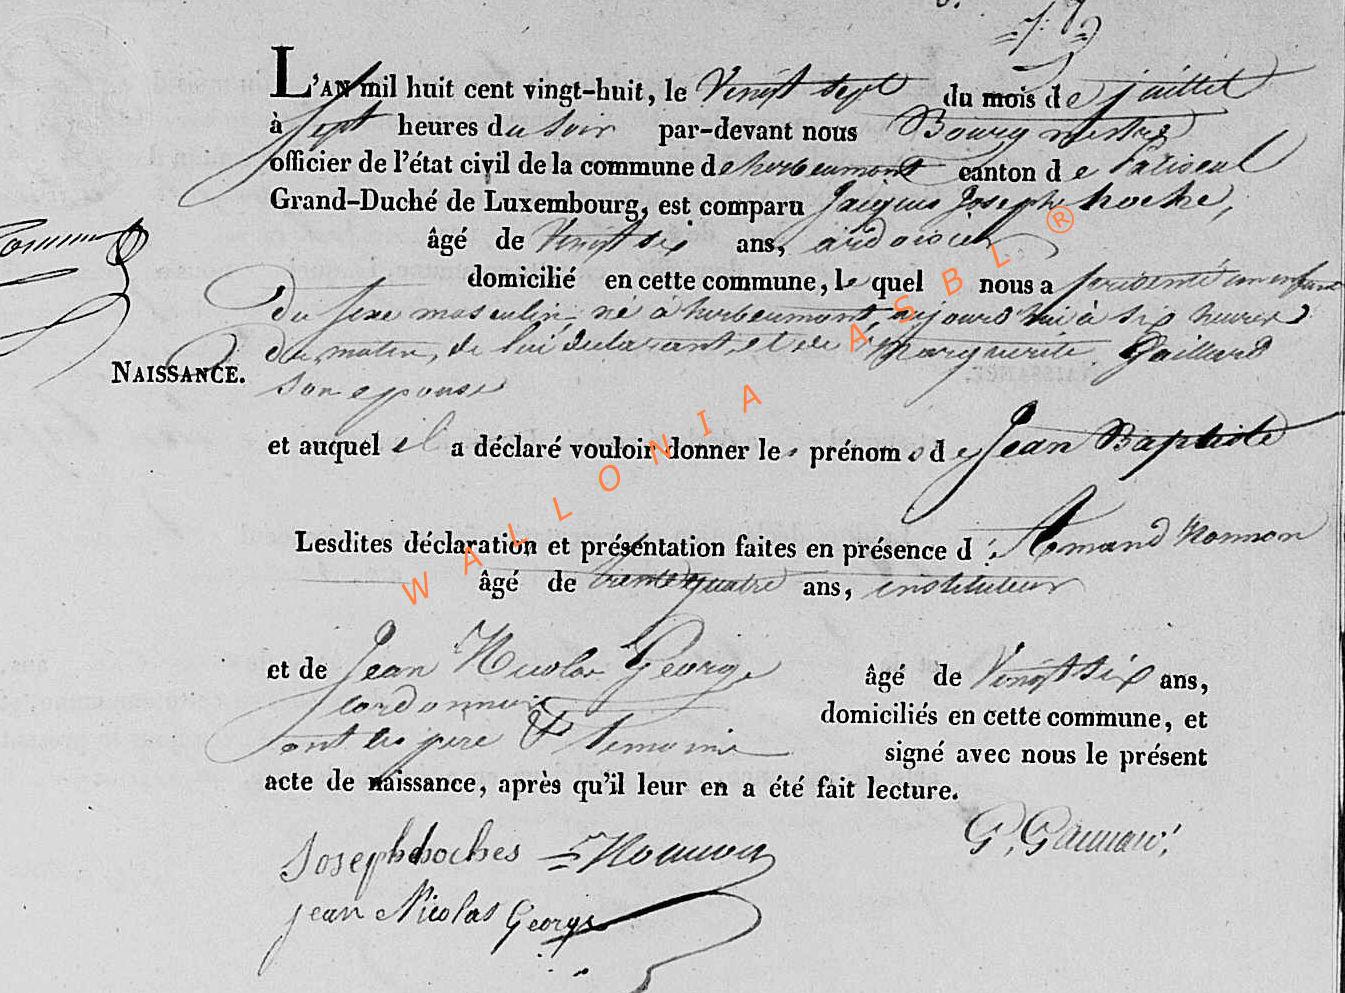 L'an mil huit cent vingt-huit, le Vingt sept du mois de juillet
à Sept heures du Soir par-devant nous Bourgmestre
officier de l'état civil de la commune de herbeumont canton de Paliseul
Grand-Duché de Luxembourg, est comparu Jacques Joseph hoche,
âgé de Vingt six ans, ardoisier
domicilié en cette commune, le quel nous a présenté un enfant
du sexe masculin né à herbeumont, aujourd'hui à six heures
du matin, de lui déclarant et de Marguerite Gaillard
NAISSANCE. son epouse
et auquel il a déclaré vouloir donner les prénoms de Jean Baptiste
Lesdites déclaration et présentation faites en présence d' Amand
âgé de trente quatre ans, instituteur
et de Jean Nicolas George âgé de Vingt six ans,
Cordonnier domiciliés en cette commune, et
ont les père & temoins signé avec nous le présent
acte de naissance, après qu'il leur en a été fait lecture.
Joseph hoches
jean Nicolas George
WALLONIA ASBL ®